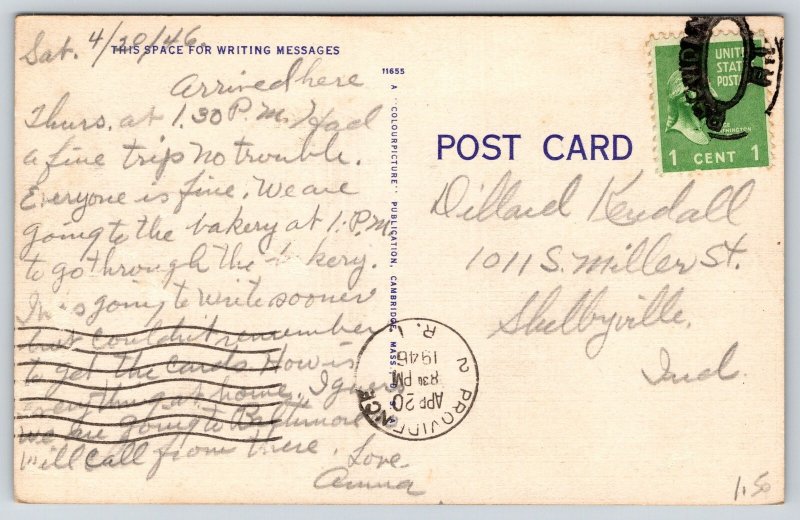 Sat. 4/20/46.
THIS SPACE FOR WRITING MESSAGES
Arrived here
Thurs. at 1.30 P.M. Had
a fine trip no trouble.
Everyone is fine. We are
going to the bakery at 1. P.M.
to go through the bakery.
I was going to write sooner
but couldn't remember
to get the cards. How is
everything at home. I guess
we are going to Baltimore
will call from there.
Love
Anna
11655
A "COLOURPICTURE" PUBLICATION, CAMBRIDGE, MASS.
POST CARD
UNITED
STATES
POSTAGE
WASHINGTON
1 CENT 1
Dillard Kendall
1011 S. Miller St.
Shelbyville,
Ind.
PROVIDENCE 2
R. I.
APR 20
8 30 PM
1946
1.50